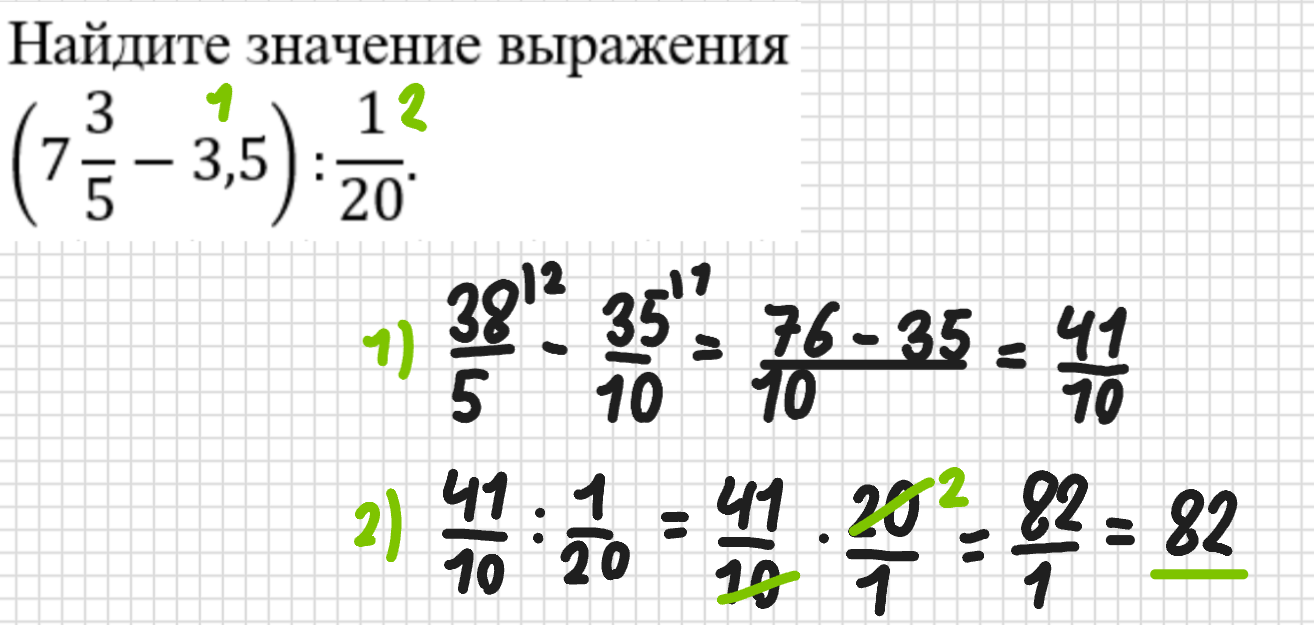 Найдите значение выражения
(7 3/5 − 3,5) : 1/20. 1 2
1) 38/5 |2 − 35/10 |1 = 76 − 35/10 = 41/10
2) 41/10 : 1/20 = 41/10 · 20/1 2 = 82/1 = 82